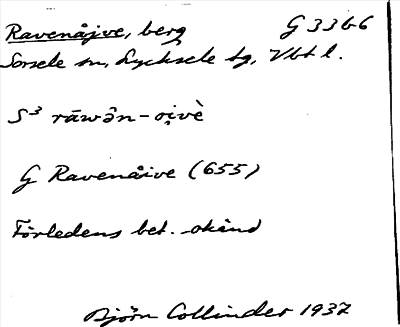 Ravenåjve, berg G 33b6
Sorsele sn, Lycksele tg, Vbt l.
S³ rāwə̂n-oi̯vè
G Ravenåive (655)
Förledens bet. okänd
Björn Collinder 1937